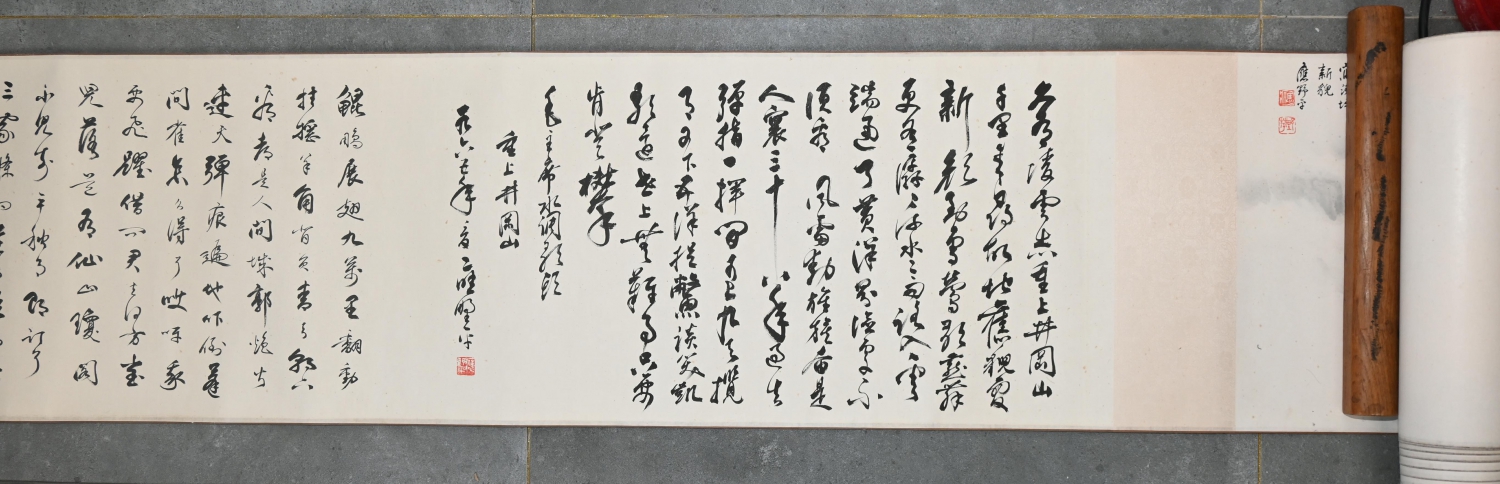 新貌
應野平
久有凌雲志重上井岡山
千里来尋故地舊貌變
新顏到處鶯歌燕舞
更有潺潺流水高路入雲
端過了黃洋界險處不
須看風雷動旌旗奮是
人寰三十八年過去
彈指一揮間可上九天攬
月可下五洋捉鱉談笑凱
歌還世上無難事只要
肯登攀
毛主席水調歌頭
重上井岡山
應野平
鯤鵬展翅九萬里翻動
扶搖羊角背負青天朝下
看都是人間城郭炮火
連天彈痕遍地吓倒蓬
間雀怎么得了哎呀我
要飛躍借问君去何方雀
兒答道有仙山瓊閣
不見前年秋月朗訂了
三家條